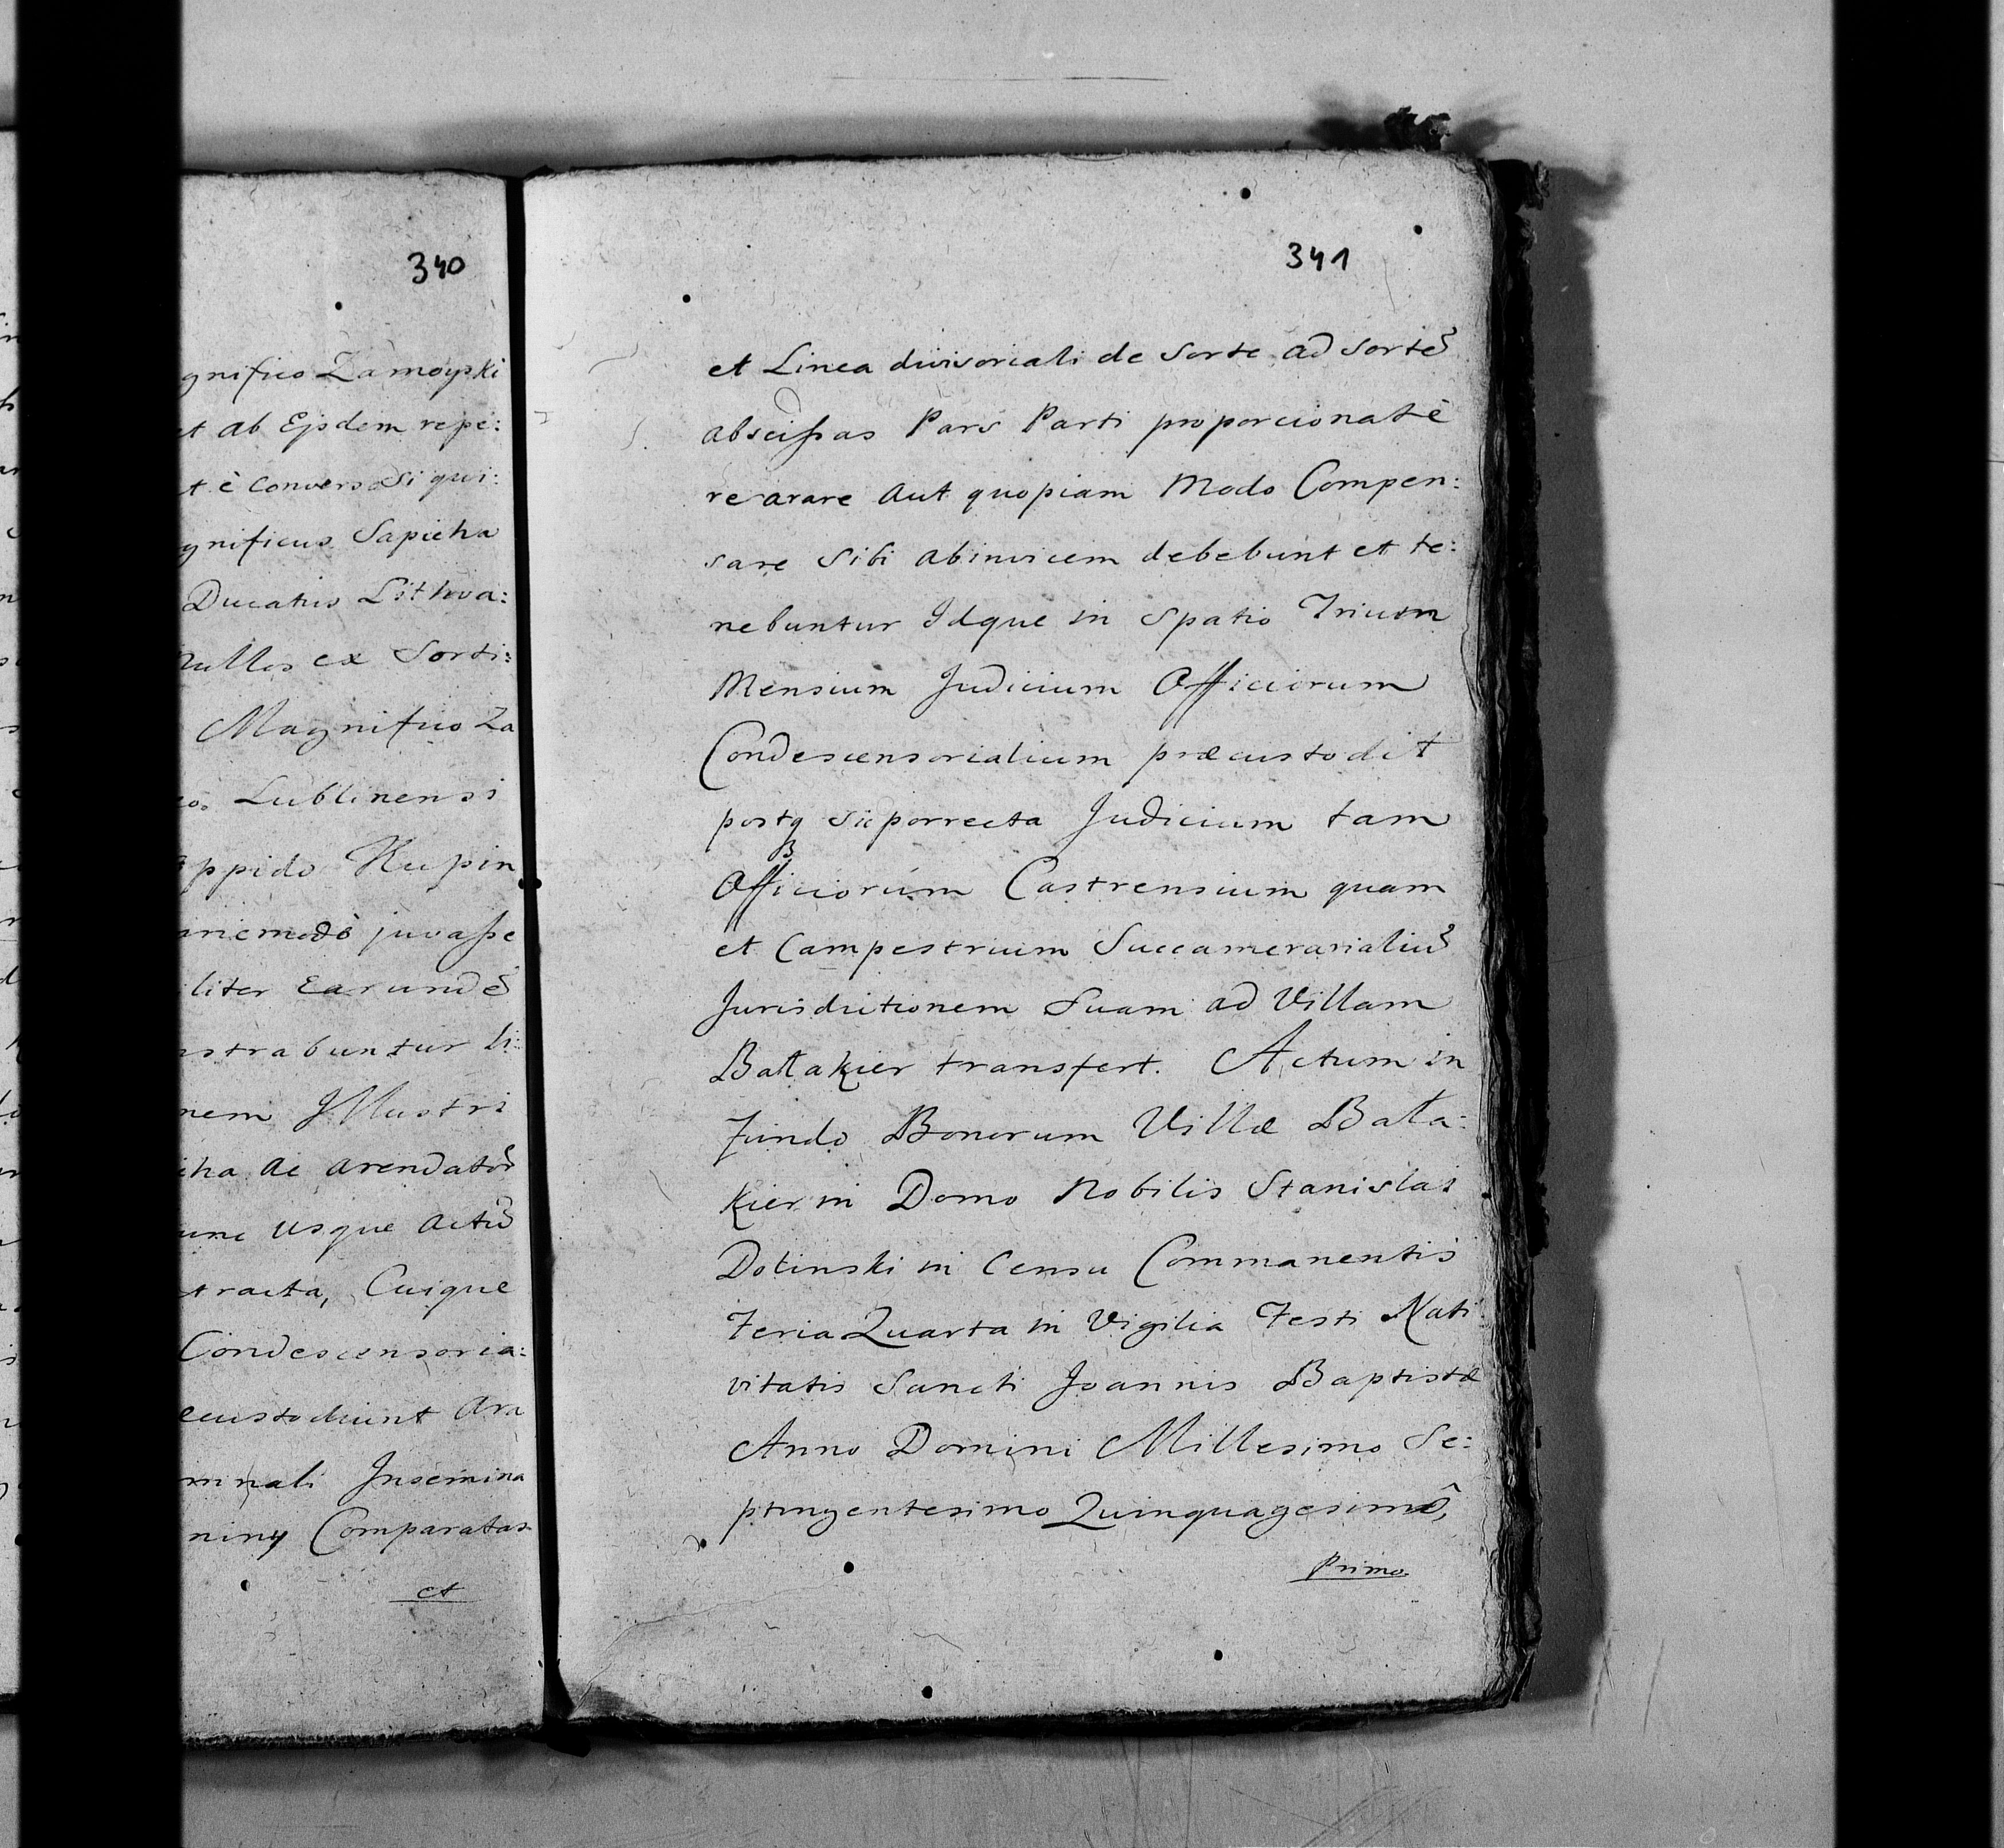 340
gnifico Zamoyski
et ab Ejsdem repe:
t è converso Si qui:
gnificus Sapieha
Ducatus Lithva:
nullos ex Sorti:
Magnifico Za
Lublinensi
ppido Kupin
modò juvasse
liter Earundẽ
strabuntur li:
nem Jllustri
ha ac arendatõr
unc usque actũ
tracta, Cuique
Condescensoria:
custodiunt Ara
mnali Jnsemina
niny Comparatas
et
341
et Linea divisoriali de Sorte ad sortẽ
abscissas Pars Parti proporcionatè
rearare aut quopiam Modo Compen:
sare Sibi abinvicem debebunt et te:
nebuntur Idque in Spatio Trium
Mensium Judicium Officiorum
Condescensorialium præcustodit
postq Sic porrecta Judicium tam
Officiorum Castrensium quam
et Campestrium Succamerarialiũ
Jurisdictionem Suam ad Villam
Batakier transfert. Actum in
fundo Bonorum Villæ Bata:
kier in Domo Nobilis Stanislai
Dotinski in Censu Commanentis
Feria Quarta in Vigilia Festi Nati
vitatis Sancti Joannis Baptistæ
Anno Domini Millesimo Se:
ptingentesimo Quinquagesimô,
Primo